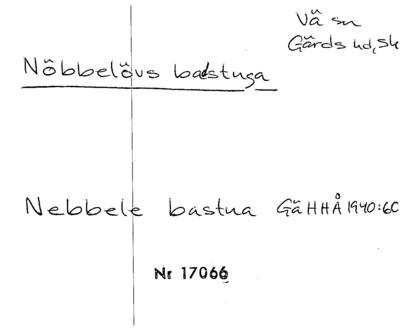 Vä sn
Gärds hd, Sk
Nöbbelövs badstuga
Nebbele bastua GäHHÅ 1940:60
Nr 17066